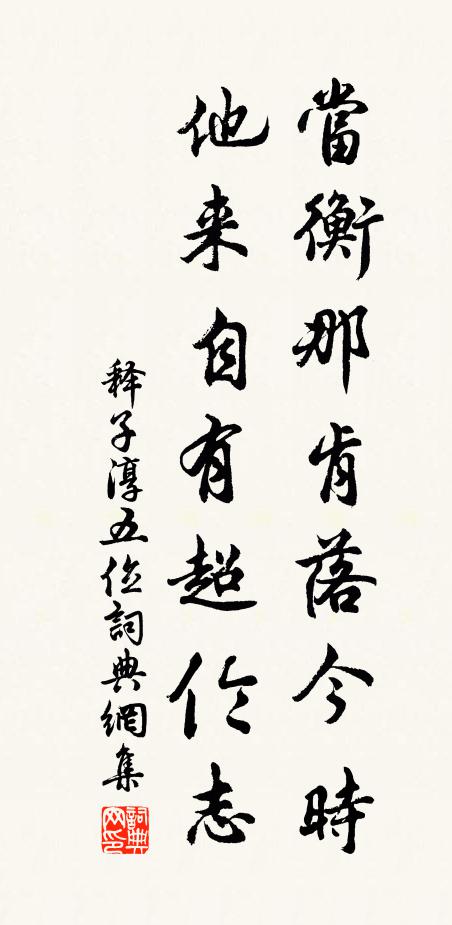 當衡那肯落今時
他来自有超伦志
释子淳五位詞典網集
詞典网印